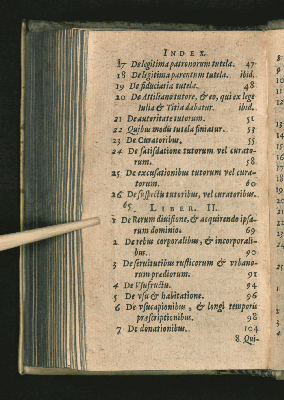 INDEX.
17 De legitima patronorum tutela. 47
18 De legitima parentum tutela. ibid.
19 De fiduciaria tutela. 48
20 De Attiliano tutore, & eo, qui ex lege
Iulia & Titia dabatur. ibid.
21 De autoritate tutorum. 51
22 Quibus modis tutela finiatur. 53
23 De Curatoribus. 55
24 De satisdatione tutorum vel curato-
rum. 58
25 De excusationibus tutorum vel cura-
torum. 60
26 De suspectis tutoribus, vel curatoribus.
65 LIBER. II.
1 De Rerum divisione, & acquirendo ipsa-
rum dominio. 69
2 De rebus corporalibus, & incorporali-
bus. 90
3 De servitutibus rusticorum & urbano-
rum prediorum. 91
4 De Vsufructu. 94
5 De vsu & habitatione. 96
6 De vsucapionibus, & longi temporis
præscriptionibus. 98
7 De donationibus. 104
8 Qui-